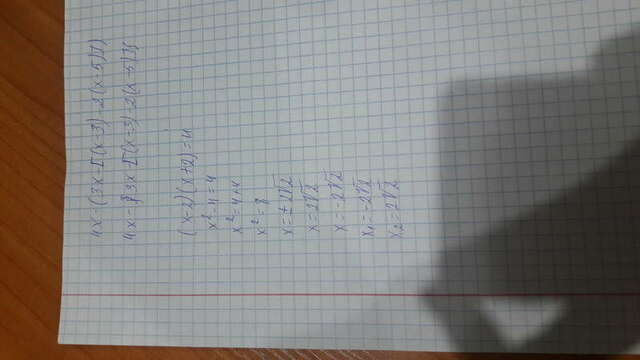 4x-(3x-[(x-3)-2(x-5)])
4x-{3x-[(x-3)-2(x-5)]}
(x-2)(x+2)=4
x²-4=4
x²=4+4
x²=8
x=±2√2
x=2√2
x=-2√2
x₁=-2√2
x₂=2√2